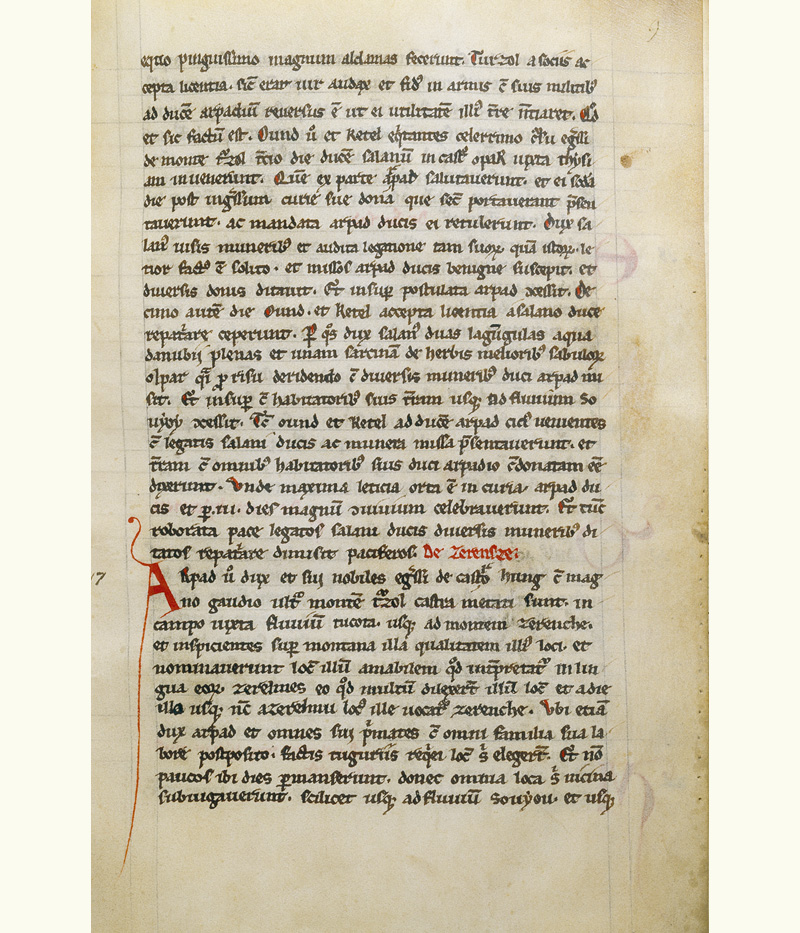 equo pinguissimo magnum aldamas fecerunt. Turzol a sociis ac
cepta licentia. sic̄ erat uir audax et fid᷒ in armis c̄ suis militib᷒
ad ducē arpadiū reuersus ē ut ei utilitatē illi᷒ tr̄e n̄tiaret. Qd̄
et sic factū est. Ound ū et Ketel eq̇tantes celerrimo cursu eg̃ssi
de monte turzol tc̄io die ducē salanū in cast᷒ opar iuxta thysci
am inuenerunt. Quē ex parte arpad salutauerunt. et ei sc̄da
die post ing̃ssum curie sue dona que secū portauerant p̄sen
tauerunt. ac mandata arpad ducis ei retulerunt. Dux sa
lan᷒ uisis munerib᷒ et audita legatione tam suoꝝ quā istoꝝ. le
tior fact᷒ ē solito. et missos arpad ducis benigne suscepit. et
diuersis donis ditauit. Et insup̱ postulata arpad ↄcessit. De
cimo autē die Ound. et Ketel accepta licentia a salano duce
repat̃are ceperunt. P̱ q̊s dux salan᷒ duas lagūgulas aqua
danubij plenas et unam sarcinā de herbis meliorib᷒ sabuloꝝ
olpar qȧ p̱ risu deridendo c̄ diuersis munerib᷒ duci arpad mi
sit. Et insup̱ c̄ habitatorib᷒ suis tr̄am usq; ad fluuium So
uyoy ↄcessit. Tc̄ ound et Ketel ad ducē arpad citi᷒ uenientes
c̄ legatis salani ducis ac munera missa p̄sentauerunt. et
tr̄am c̄ omnib᷒ habitatorib᷒ suis duci arpadio c̄donatam eē
dixerunt. Vnde maxima leticia orta ē in curia. arpad du
cis et p̱ .iii. dies magnū ↄuiuium celebrauerunt. Et tūc
roborata pace legatos salani ducis diuersis munerib᷒ di
tatos repat̃are dimisit paciferos. De Zerensze.
17
Arpad ū dux et sui nobiles eg̃ssi de castro hung c̄ mag
no gaudio ult᷒ montē turzol castra metati sunt. in
campo iuxta fluuiū tucota. usq; ad montem zerenche.
et inspicientes sup̱ montana illa qualitatem illi᷒ loci. et
nominauerunt locū illū amabilem qd̄ int̄pretat᷒ in lin
gua eoꝝ. zerelmes eo qd̄ multū dilexert̄ illū locū et a die
illo usq; nc̄ a zerelmu loc᷒ ille uocat᷒ zerenche. Vbi etiā
dux arpad et omnes sui p̄mates c̄ omni familia sua la
bore postposito. factis tuguriis reqiei locū s̄ elegert̄. Et nō
paucos ibi dies p̱manserunt. donec omnia loca s̄ uicina
subiugauerunt. scilicet usq; ad fluuiū Souyou. et usq;